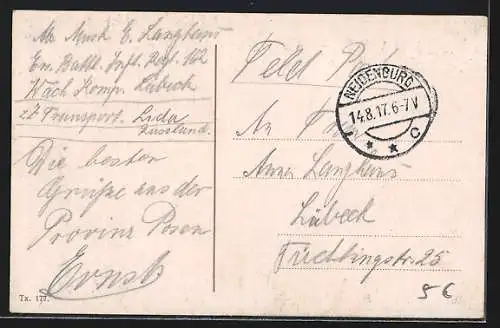 Abs. Musk. E. Langhans
Ers. Battl. Inft. Reg. 162
Wach Komp. Lübeck
zt Transport. Lida
Russland.
Die besten
Grüße aus der
Provinz Posen
Ernst
Tx. 177.
Feld Post
NEIDENBURG
14.8.17. 6-7 V
* * C
An Frau
Anna Langhans
Lübeck
Füchtingstr. 25
56